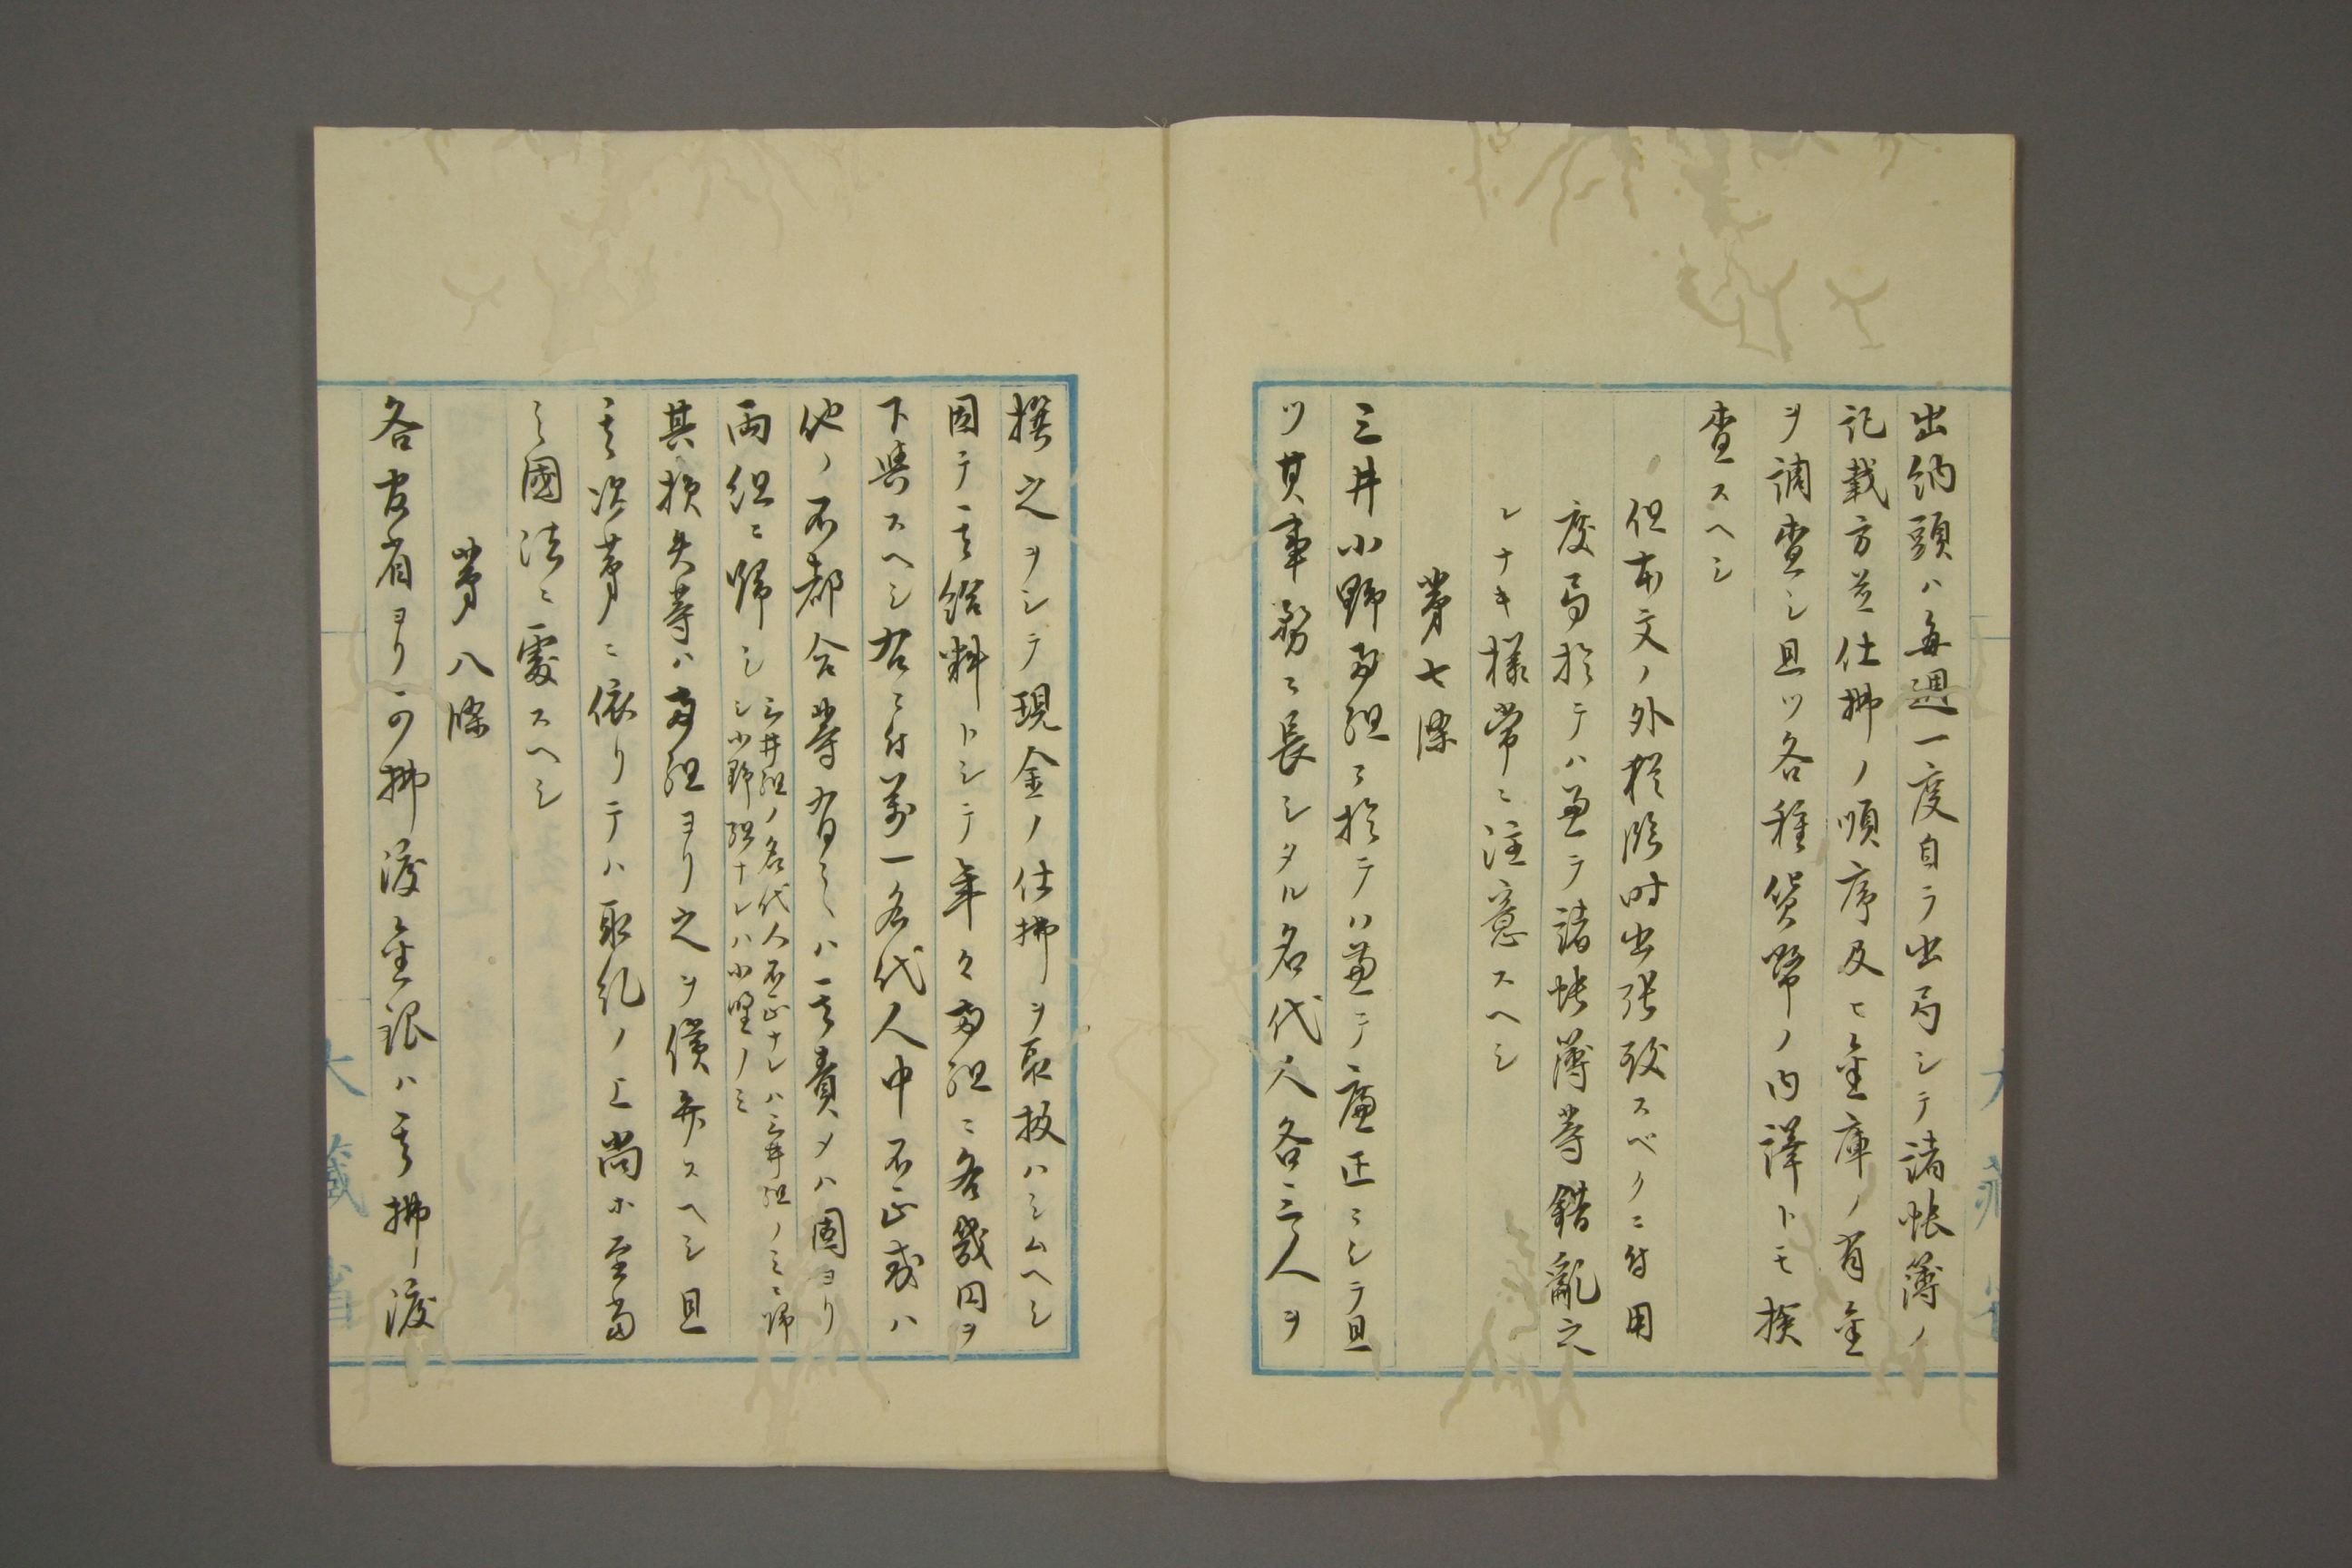 出納頭ハ毎週一度自ラ出局シテ諸帳簿ノ
記載方並仕拂ノ順序及ヒ金庫ノ有金
ヲ調査シ且ツ各種貨幣ノ内譯トモ撿
査スヘシ
但本文ノ外於臨時出張致スベクニ付用
度局於テハ兼テ諸帳簿等錯亂之
レナキ様常ニ注意スヘシ
第七條
三井小野両組ニ於テハ兼テ廉正ニシテ且
ツ其事務ニ長シタル名代人各三人ヲ
撰之ヲシテ現金ノ仕拂ヲ取扱ハシムヘシ
因テ其給料トシテ年々両組ニ各幾円ヲ
下與スヘシ右ニ付萬一名代人中不正或ハ
他ノ不都合等有之ハ其責メハ固ヨリ
両組ニ歸シ三井組ノ名代人不正ナレハ三井組ノミニ歸
シ小野組ナレハ小野ノミ
其損失等ハ両組ヨリ之ヲ償弁スヘシ且
其次第ニ依リテハ取糺ノ上尚ホ至當
之國法ニ處スヘシ
第八條
各官省ヨリ可拂渡金銀ハ其拂渡
大藏省